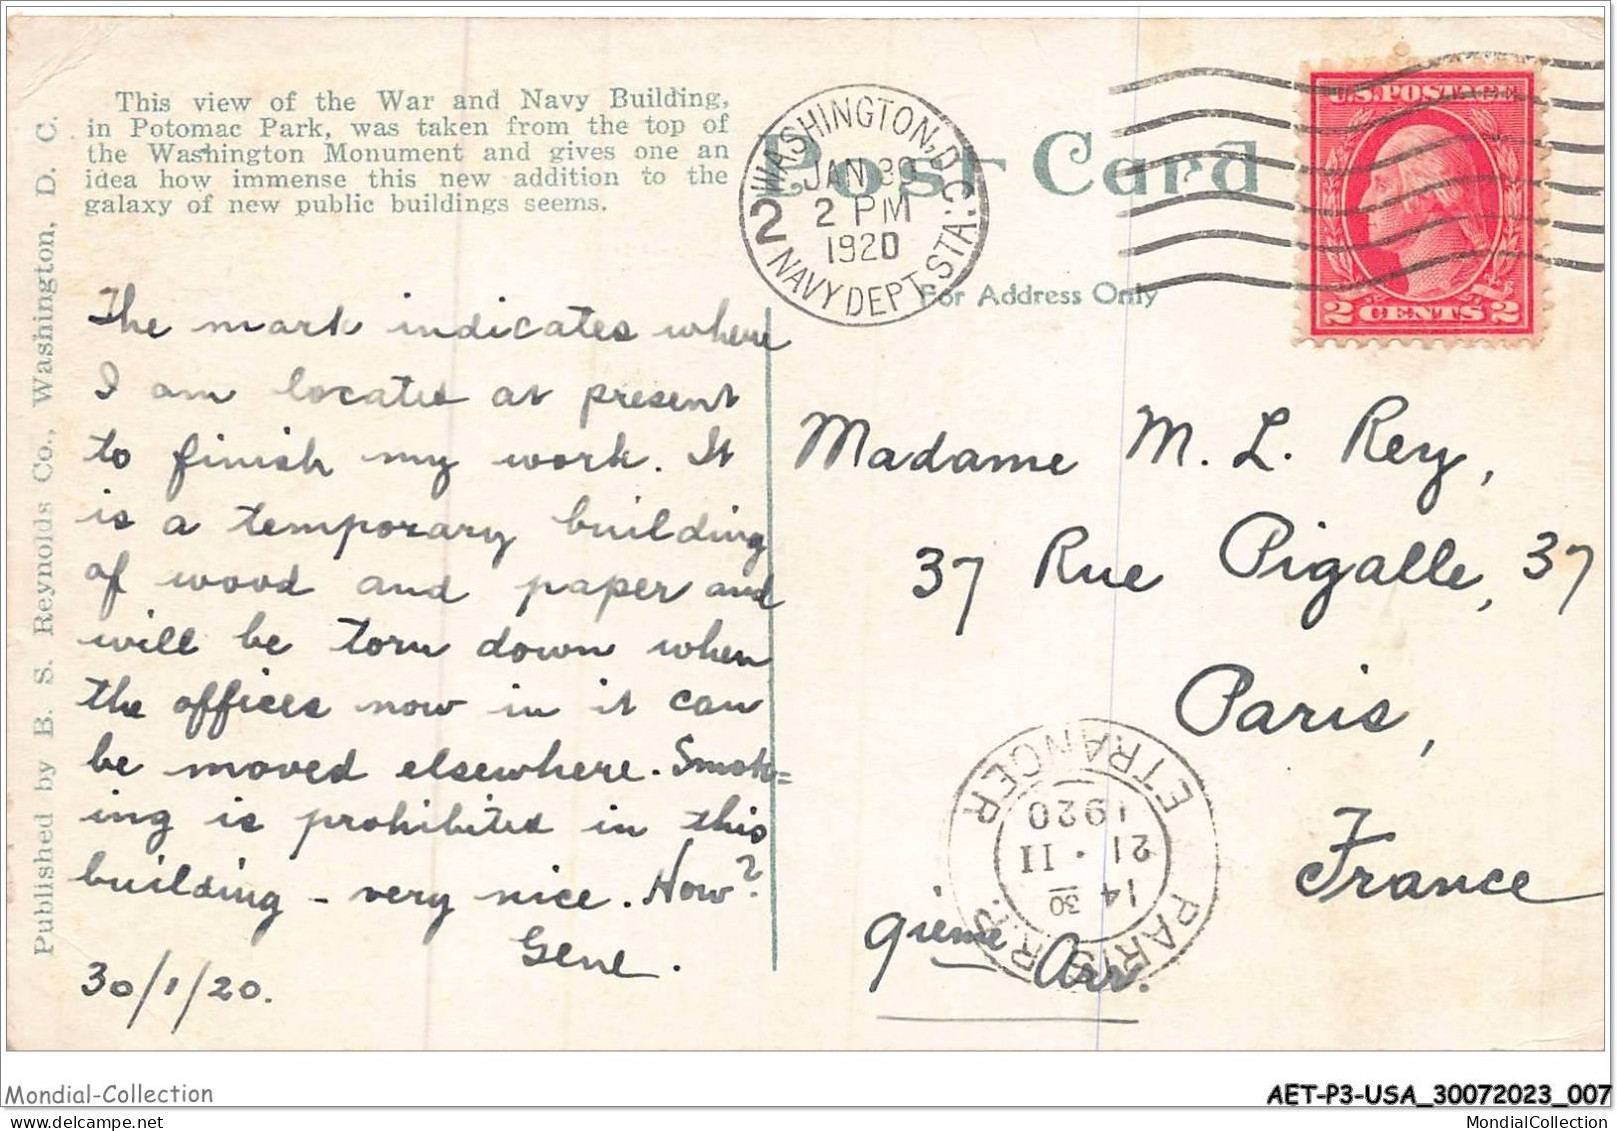 This view of the War and Navy Building,
in Potomac Park, was taken from the top of
the Washington Monument and gives one an
idea how immense this new addition to the
galaxy of new public buildings seems.
Published by B. S. Reynolds Co., Washington, D. C.
Post Card
For Address Only
WASHINGTON, D.C.
JAN 30
2 PM
1920
NAVY DEPT. STA.
2
U.S. POSTAGE
2 CENTS 2
The mark indicates where
I am located at present
to finish my work. It
is a temporary building
of wood and paper and
will be torn down when
the offices now in it can
be moved elsewhere. Smok=
ing is prohibited in this
building - very nice. How?
Gene.
30/1/20.
Madame M. L. Rey,
37 Rue Pigalle, 37
Paris,
France
9ieme Arr.
PARIS R.P.
ETRANGER
14 30
21 . II
1920
Mondial-Collection
AET-P3-USA_30072023_007
MondialCollection